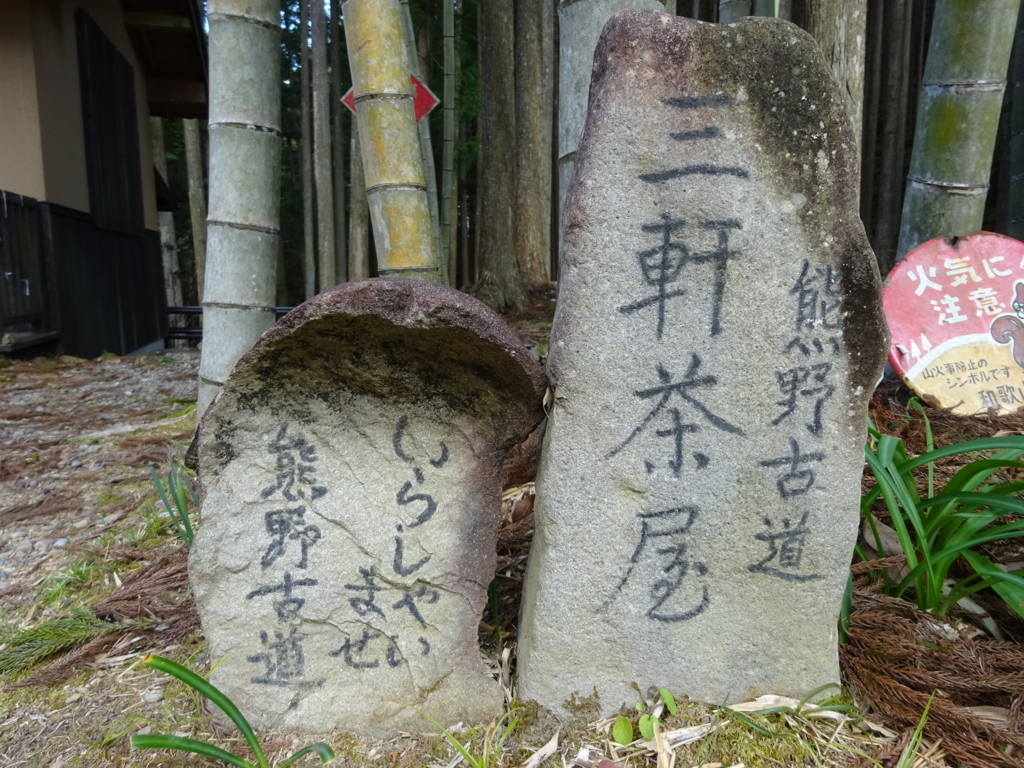 熊野古道
三軒茶屋
いらしゃい
ませ
熊野古道
火気に
注意
山火事防止の
シンボルです
和歌山